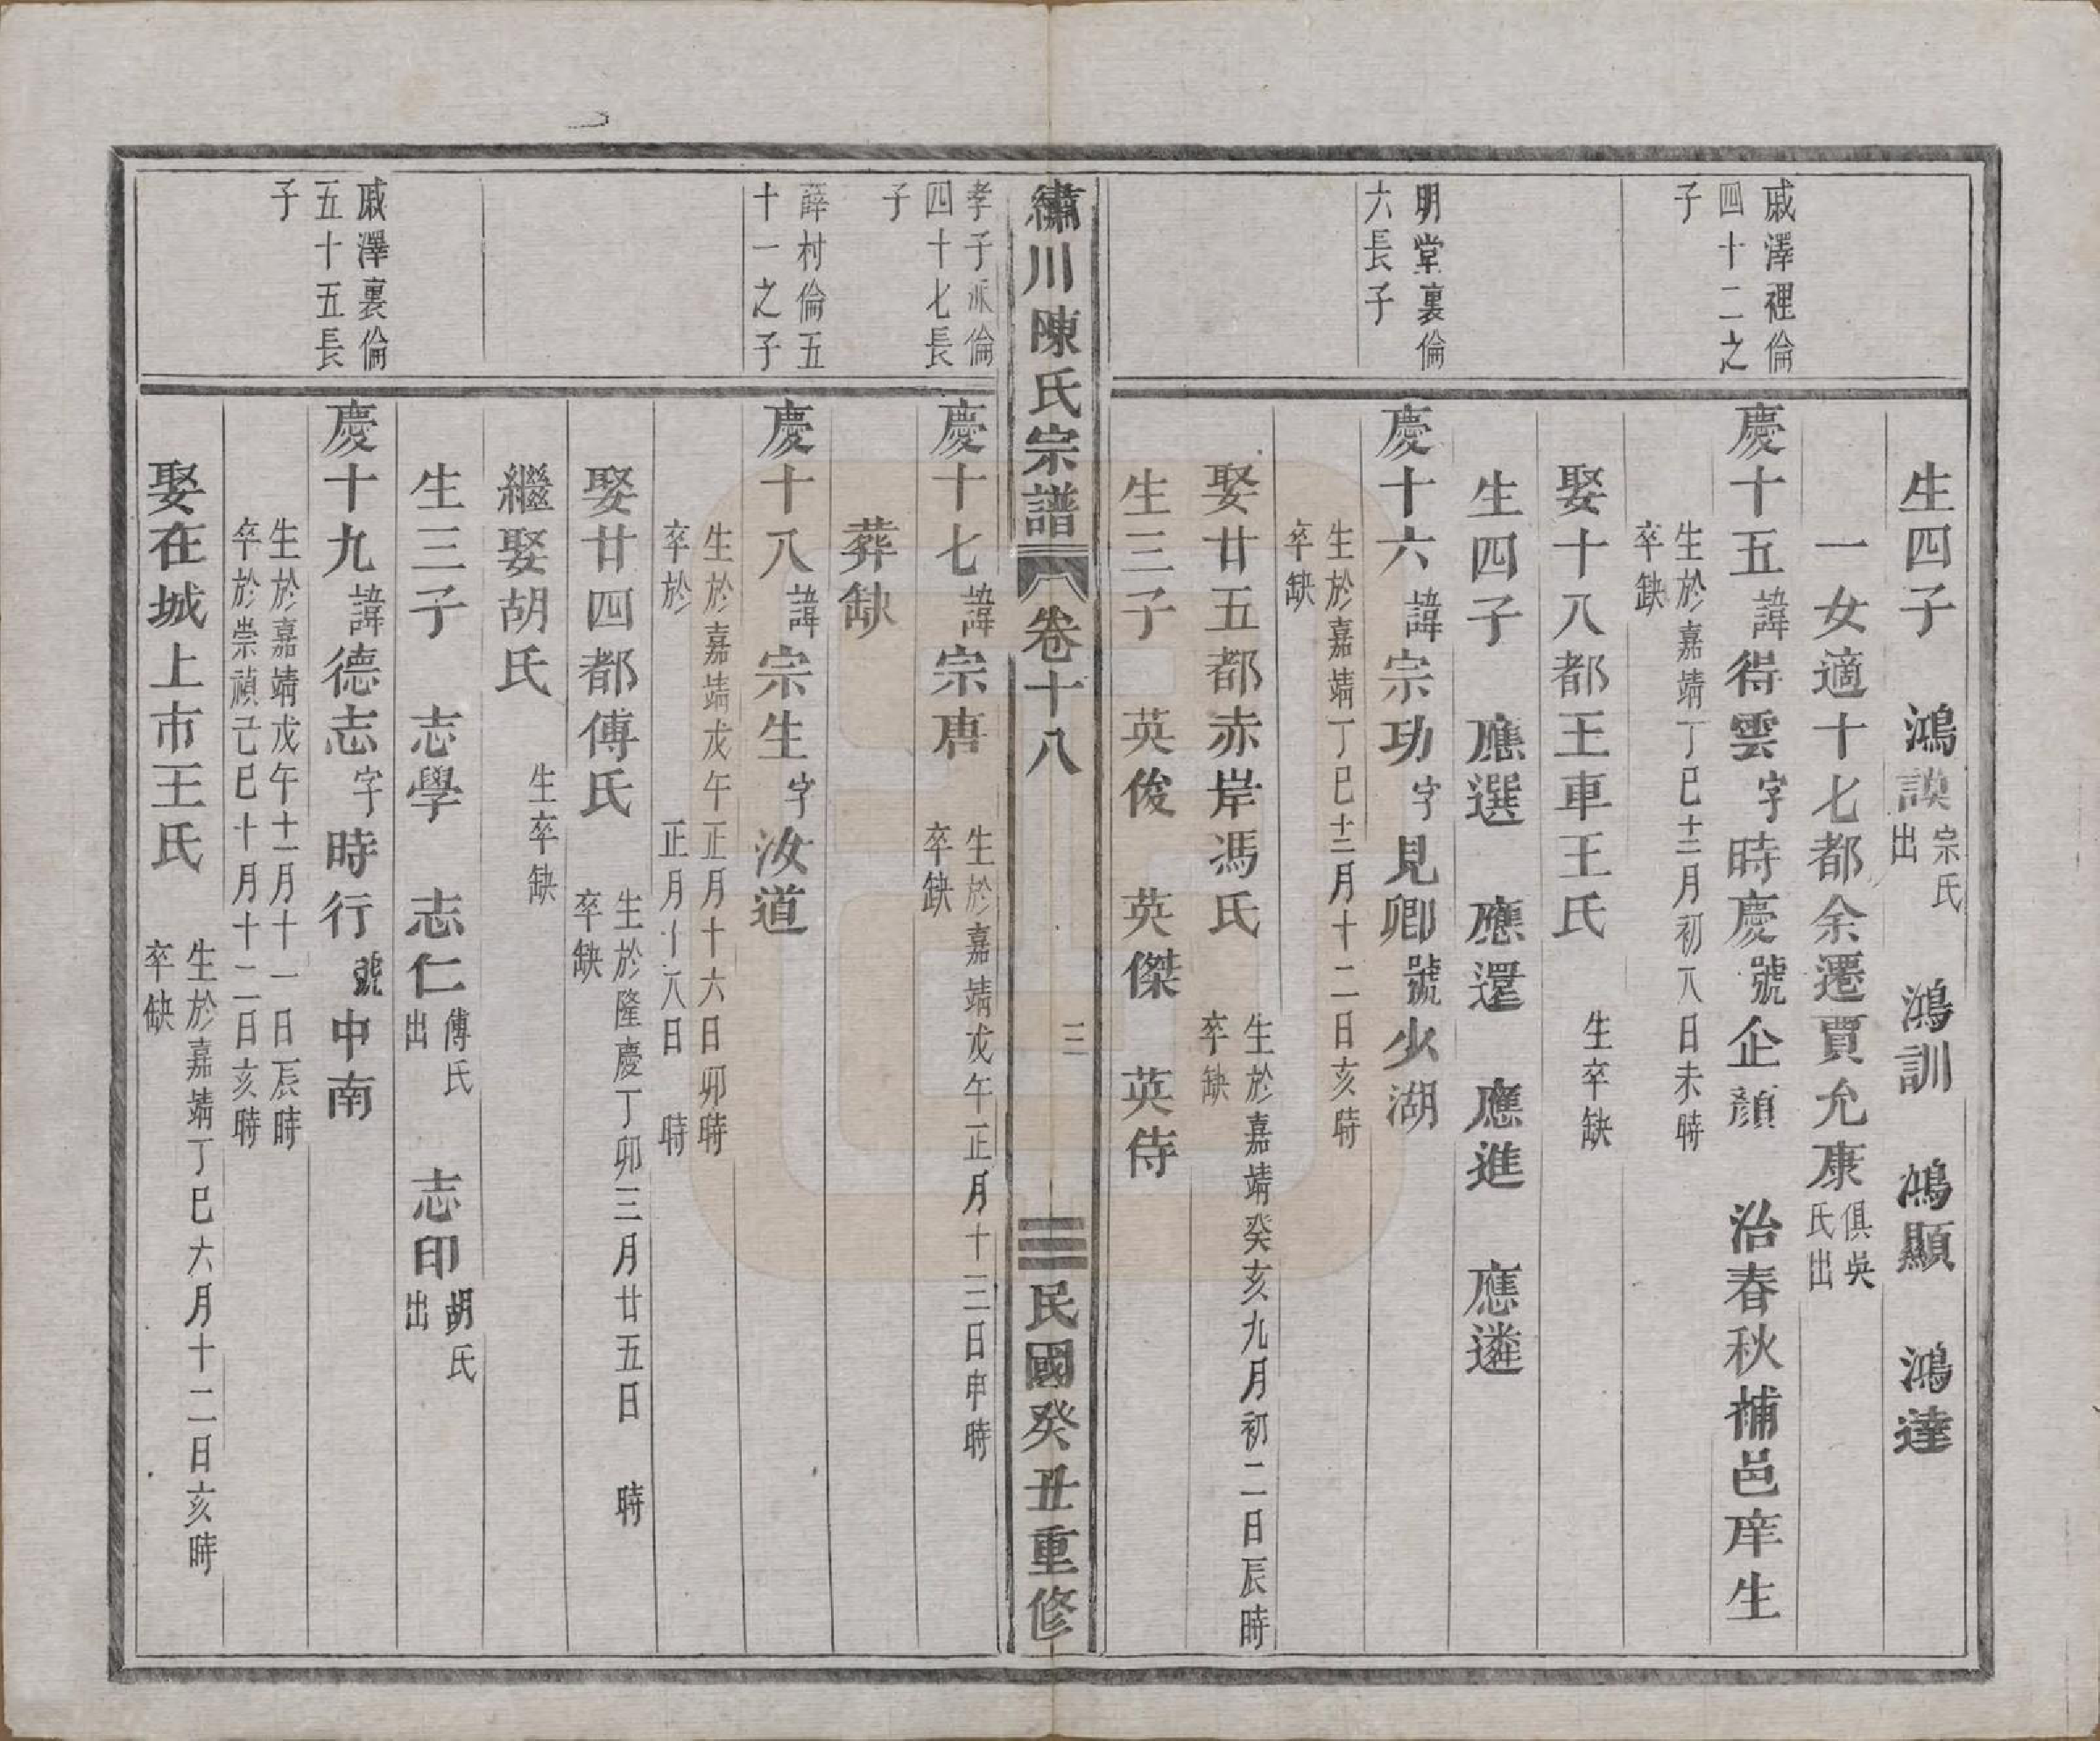 戚澤裡倫
四十二之
子
明堂裏倫
六長子
生四子　鴻謨宗氏出　鴻訓　鴻顯　鴻達
一女適十七都余遷賈允康俱吳氏出
慶十五諱得雲字時慶號企顏　治春秋補邑庠生
生於嘉靖丁巳十二月初八日未時
卒缺
娶十八都王車王氏　生卒缺
生四子　應選　應還　應進　應遴
慶十六諱宗功字見卿號少湖
生於嘉靖丁巳十二月十二日亥時
卒缺
娶廿五都赤岸馮氏　生於嘉靖癸亥九月初二日辰時
卒缺
生三子　英俊　英傑　英侍
繡川陳氏宗譜　卷十八　三　民國癸丑重修
孝子派倫
四十七長
子
薛村倫五
十一之子
戚澤裏倫
五十五長
子
慶十七諱宗唐　生於嘉靖戊午正月十三日申時
卒缺
葬缺
慶十八諱宗生字汝道
生於嘉靖戊午正月十六日卯時
卒於　正月十八日　時
娶廿四都傅氏　生於隆慶丁卯三月廿五日　時
卒缺
繼娶胡氏　生卒缺
生三子　志學　志仁傅氏出　志印胡氏出
慶十九諱德志字時行號中南
生於嘉靖戊午十一月十一日辰時
卒於崇禎己巳十月十二日亥時
娶在城上市王氏　生於嘉靖丁巳六月十二日亥時
卒缺